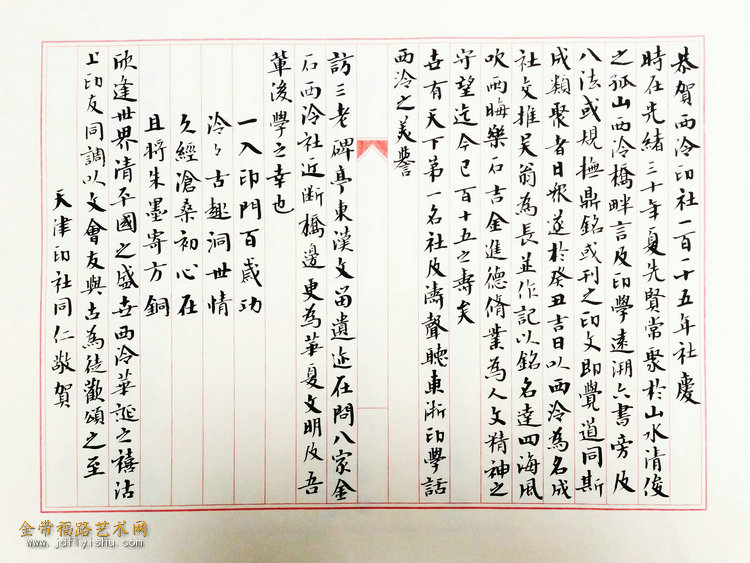 恭賀西泠印社一百一十五年社慶
時在光緒三十年夏先賢常聚於山水清俊
之孤山西泠橋畔言及印學遠溯六書旁及
八法或規撫鼎銘或刊之印文即覺道同斯
成類聚者日衆遂於癸丑吉日以西泠為名成
社交推吴翁為長並作記以銘名達四海風
吹雨晦樂石吉金進德脩業為人文精神之
守望迄今已百十五之壽矣
世有天下第一名社及濤聲聽東浙印學話
西泠之美譽
訪三老碑亭東漢文留遺迹在問八家金
石西泠社近斷橋邊更為華夏文明及吾
輩後學之幸也
一入印門百感功
泠々古趣洞世情
久經滄桑初心在
且將朱墨寄方銅
欣逢世界清平國之盛世西泠華誕之禧沽
上印友同調以文會友與古為徒歡頌之至
天津印社同仁敬賀
金带福路艺术网
www.jdflyishu.com